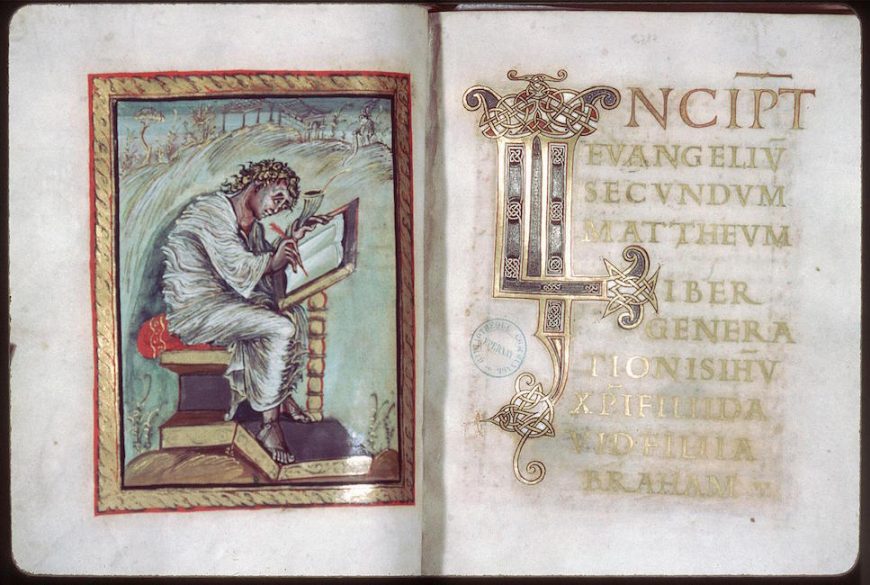 INCIP̅T
EVANGELIV̅
SECVNDVM
MATTHEVM
LIBER
GENERA
TIONISIH̅V
XP̅IFILIIDA
VIDFILIIA
BRAHAM